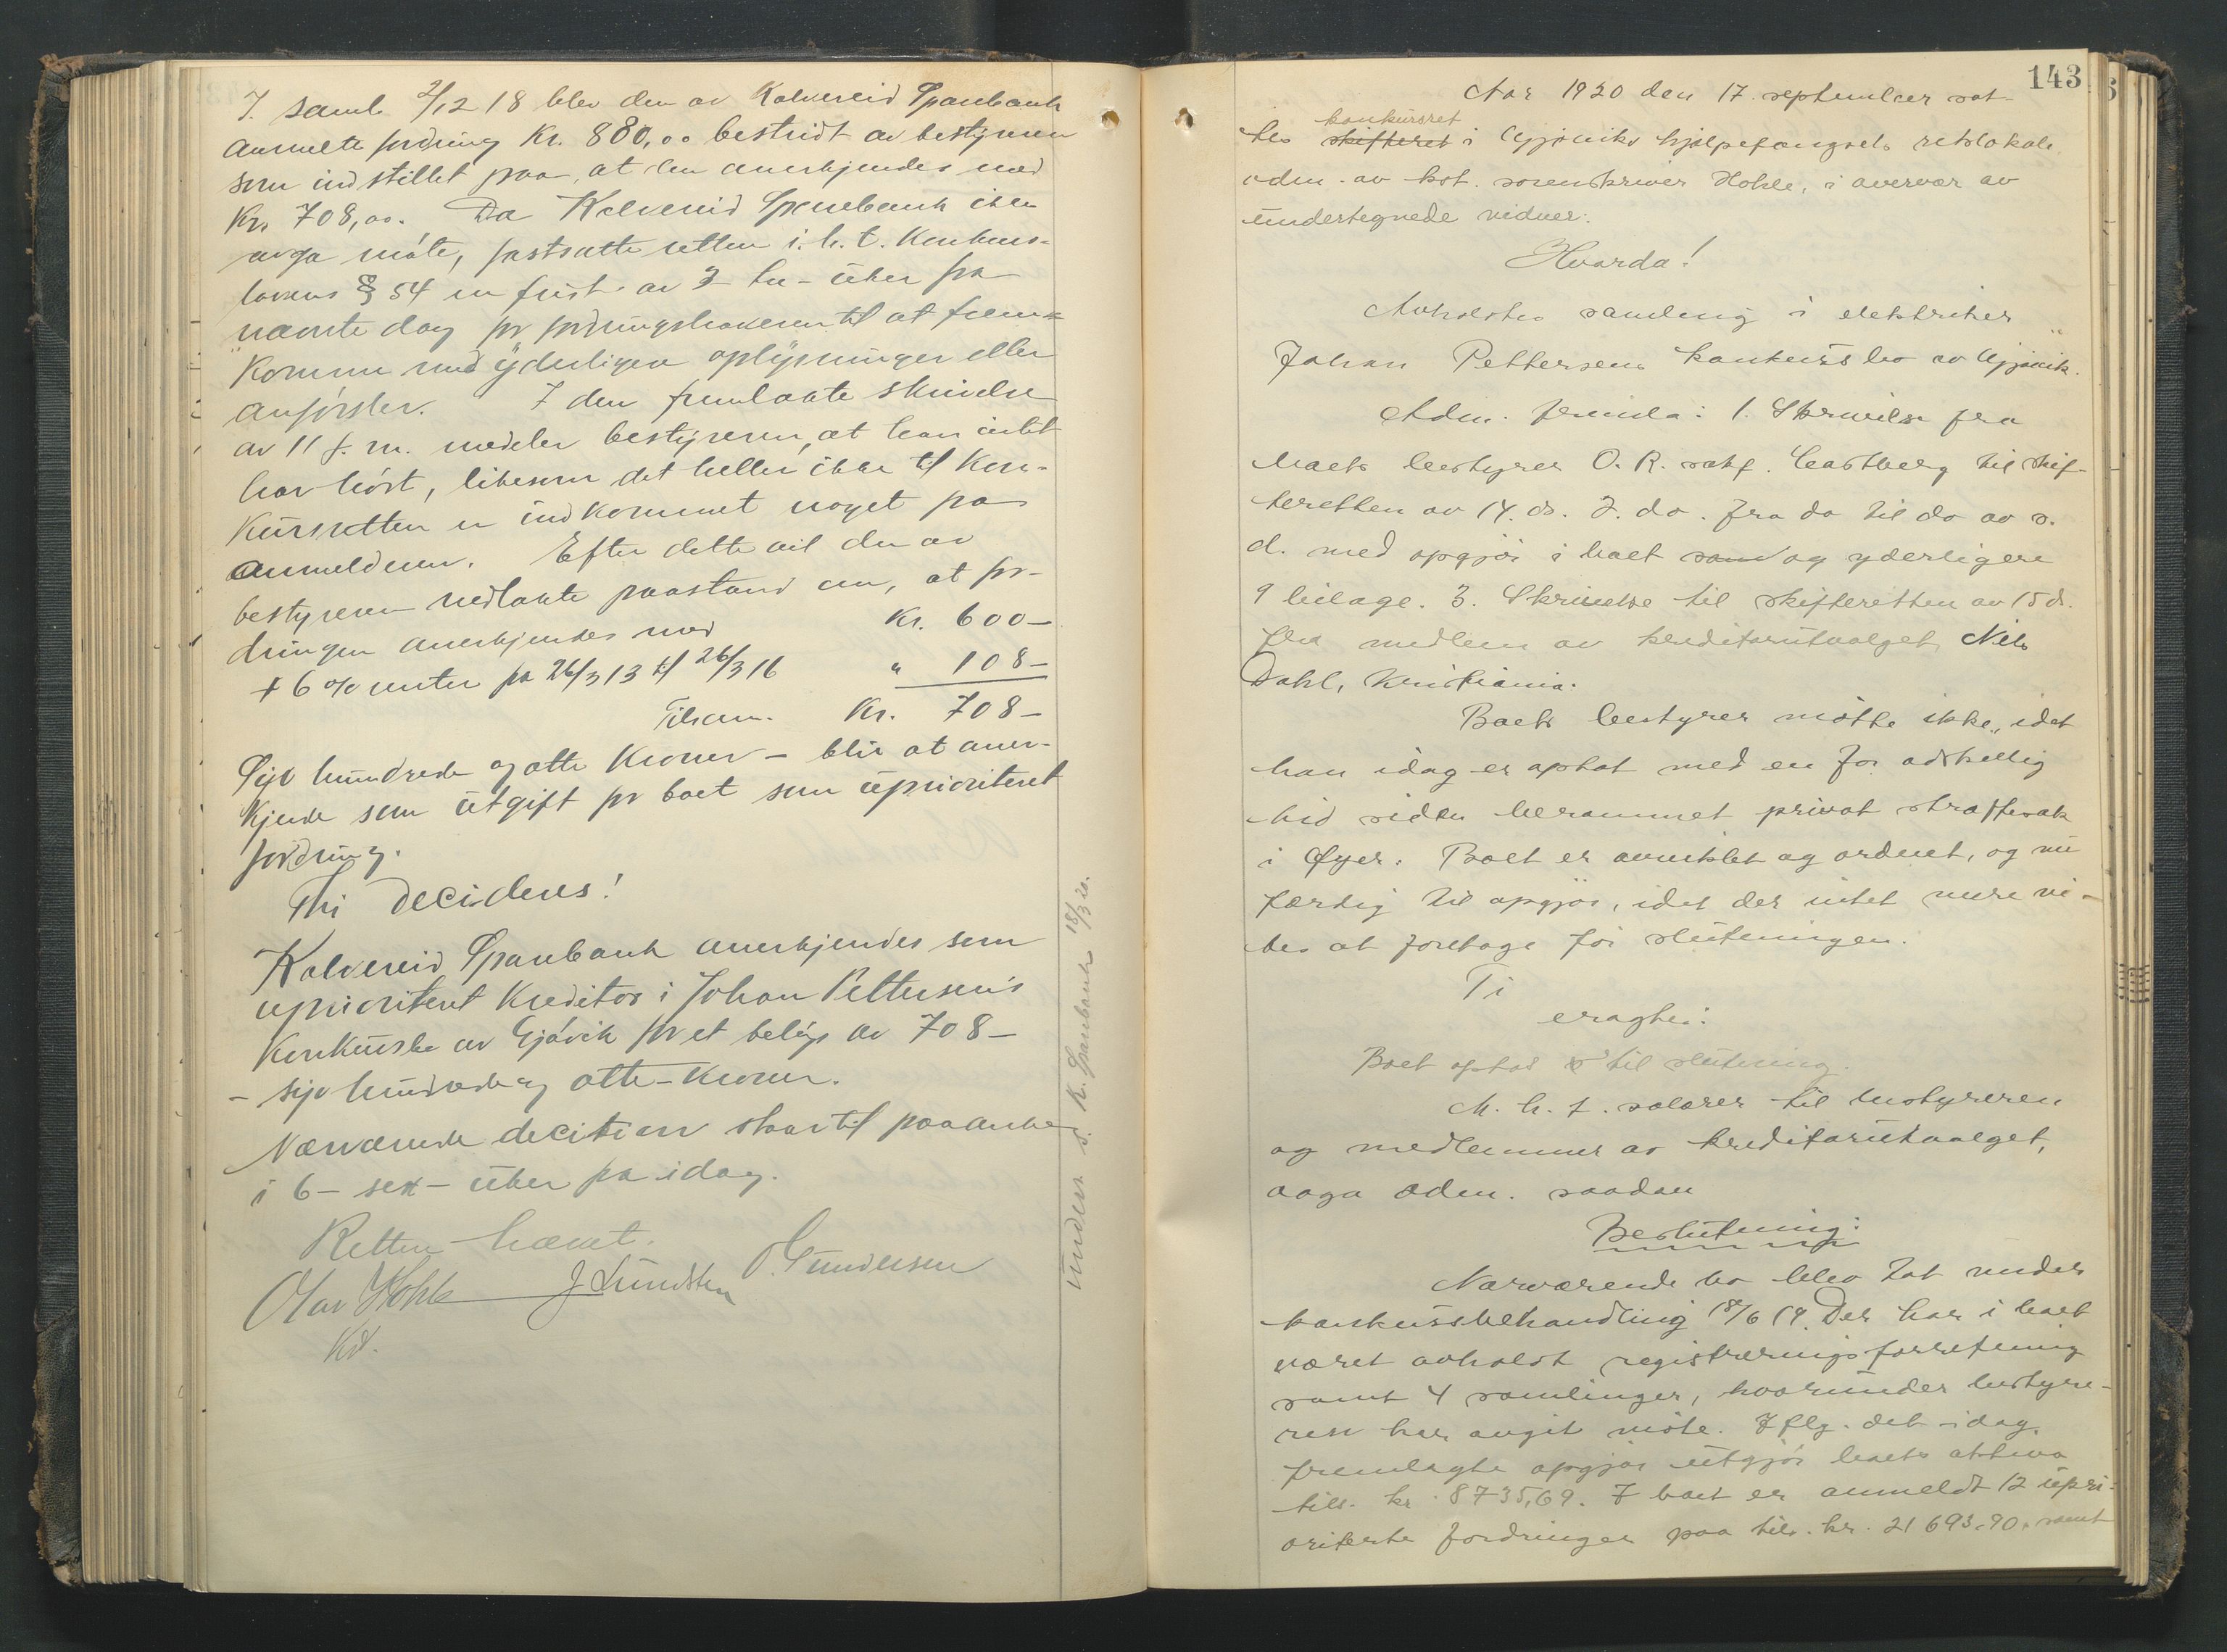 I saml. 2/12 18 blev den av Kolvereid Sparebank
anmeldte fordring Kr. 880,00 bestridt av bestyreren
som indstillet paa, at den anerkjendes med
Kr. 708,00. Da Kolvereid Sparebank ikke
avga møte, fastsatte retten i. h. t. Konkurs-
lovens § 54 en frist av 3 - tre - uker fra
nævnte dag for fordringshaveren til at frem-
komme med yderligere oplysninger eller
anførsler. I den fremlagte skrivelse
av 11 f. m. meddeler bestyreren, at han intet
har hørt, likesom det heller ikke til Kon-
kursretten er indkommet noget fra
anmelderen. Efter dette vil den av
bestyreren nedlagte paastand om, at for-
dringen anerkjendes med Kr. 600 -
+ 6 % renter fra 26/3 13 til 26/3 16 " 108 -
Tilsam. Kr. 708 -
Syv hundrede og otte Kroner - bli at aner-
kjende som utgift for boet som uprioritert
fordring.
Thi decideres!
Kolvereid Sparebank anerkjendes som
uprioritert Kreditor i Johan Pettersen's
Konkursbo av Gjøvik for et beløp av 708 -
- syv hundrede og otte - Kroner.
Nærværende decision staar til paaanke
i 6 - sex - uker fra idag.
Retten hævet.
Olav Hohle J Lundsten O. Gundersen
Kst.
underr. s. K. Sparebank 18/3 20.
143
Aar 1920 den 17. september sat-
konkursret
tes skifteret i Gjøviks hjelpefængsels retslokale
adm. av kst. sorenskriver Hohle, i overvær av
undertegnede vidner:
Hvorda!
Avholdtes samling i elektriker
Johan Pettersens konkursbo av Gjøvik.
Adm. fremla: 1. Skrivelse fra
boets bestyrer O. R. sakf. Castberg til skif-
teretten av 14. ds. 2. do. fra do til do av s.
d. med opgjør i boet samt og yderligere
9 bilage. 3. Skrivelse til skifteretten av 15 ds.
fra medlem av kreditorutvalget, Nils
Dahl, Kristiania.
Boets bestyrer møtte ikke, idet
han idag er optat med en for adskillig
tid siden berammet privat straffesak
i Øyer. Boet er avviklet og ordnet, og nu
færdig til opgjør, idet der intet mere vi-
tes at foretage før slutningen.
Ti
eragtes:
Boet optas til slutning.
M. h. t. salærer til bestyreren
og medlemmer av kreditorutvalget,
avga adm. saadan
Beslutning:
Nærværende bo blev tat under
konkursbehandling 18/6 17. Der har i boet
været avholdt registreringsforretning
samt 4 samlinger, hvorunder bestyre-
ren har avgit møte. Iflg. det idag
fremlagte opgjør utgjør boets aktiva
tils. kr. 8735,69. I boet er anmeldt 12 upri-
oriterte fordringer paa tils. kr. 21 693,90, samt